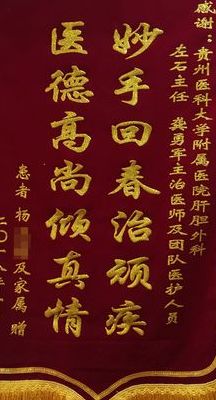 感谢：贵州医科大学附属医院肝胆外科
左石主任 龚勇军主治医师及团队医护人员
妙手回春治顽疾
医德高尚倾真情
患者杨 及家属 赠
二〇一八年